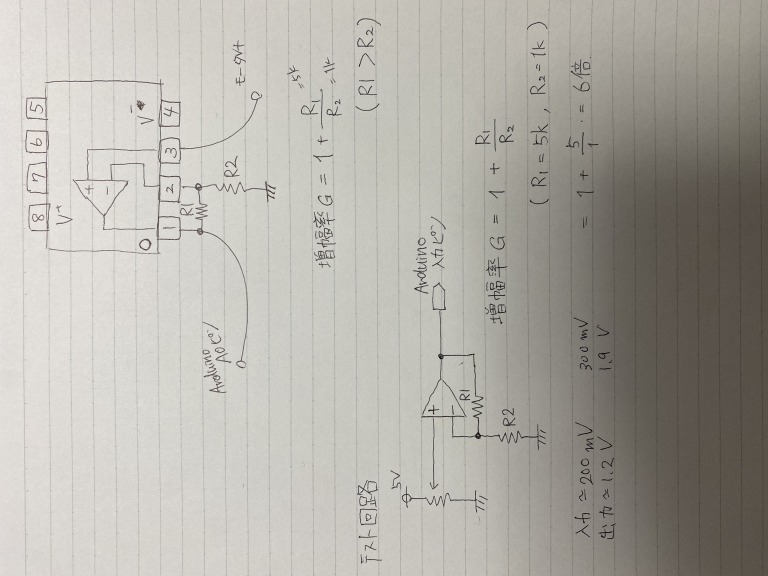 8 7 6 5
V+
+
-
V-
1 2 3 4
R1
Arduino
A0ピン
R2
モータ+
増幅率 G = 1 + R1/R2
=5k
=1k
(R1 > R2)
テスト回路
5V
+
-
Arduino
入力ピン
R1
R2
増幅率 G = 1 + R1/R2
(R1 = 5k, R2 = 1k)
= 1 + 5/1 = 6倍
入力≃200mV 300mV
出力≃1.2V 1.9V